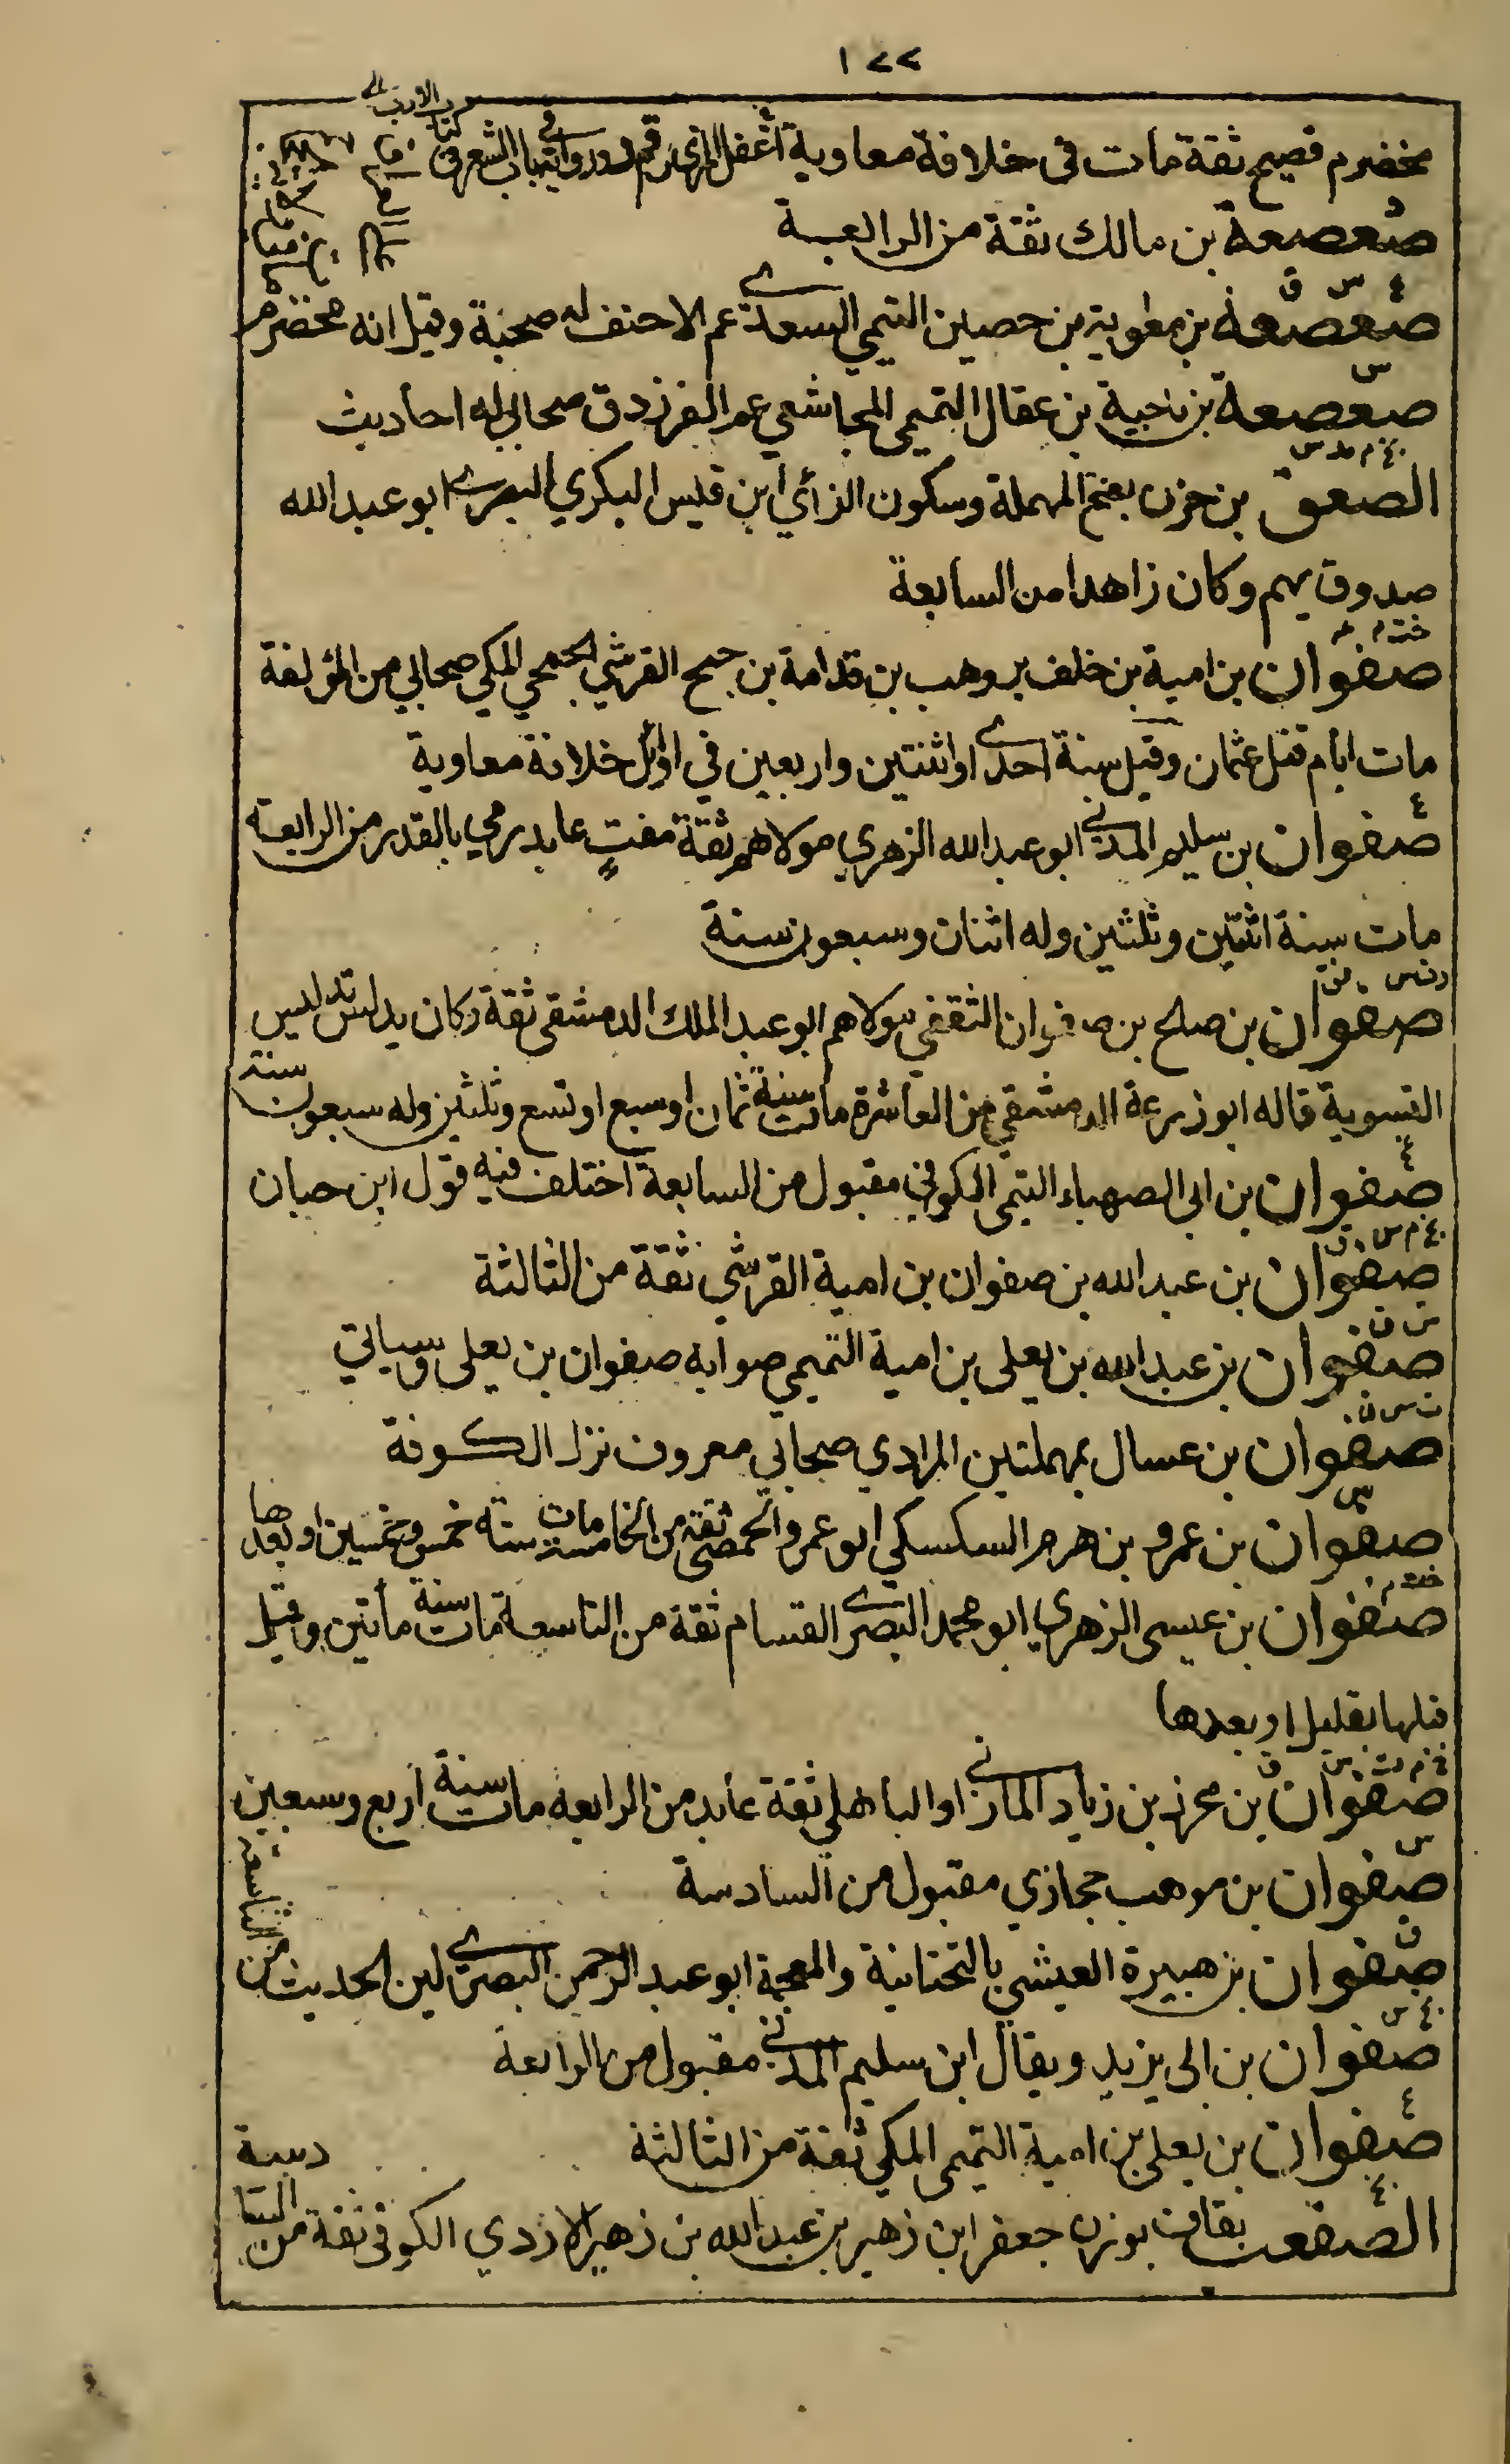 ١٧٧
مخضرم فصيح ثقة مات فى خلافة معاوية اغفل المزي رقم د ورواية في باب الشعر في كتاب الادب
صعصعة بن مالك ثقة من الرابعة
٤ س ق
صعصعة بن معوية بن حصين التيمي السعدي عم الاحنف له صحبة وقيل انه مخضرم
س
صعصعة بن ناجية بن عقال التميمي المجاشعي عم الفرزدق صحابي له احاديث
الصعق بن حزن بفتح المهملة وسكون الزاي ابن قيس البكري البصري ابو عبد الله
صدوق يهم وكان زاهدا من السابعة
صفوان بن امية بن خلف بن وهب بن قدامة بن جمح القرشي الجمحي المكي صحابي من المؤلفة
مات ايام قتل عثمان وقيل سنة احدى او اثنتين واربعين في اوائل خلافة معاوية
٤
صفوان بن سليم المدني ابو عبد الله الزهري مولاهم ثقة مفتٍ عابد رمي بالقدر من الرابعة
مات سنة اثنتين وثلثين وله اثنان وسبعون سنة
صفوان بن صلح بن صفوان الثقفي مولاهم ابو عبد الملك الدمشقي ثقة وكان يدلس تدليس
التسوية قاله ابو زرعة الدمشقي من العاشرة مات سنة ثمان او سبع او تسع وثلثين وله سبعون سنة
٤
صفوان بن ابى الصهباء التيمى الكوفي مقبول من السابعة اختلف فيه قول ابن حبان
صفوان بن عبد الله بن صفوان بن امية القرشي ثقة من الثالثة
س ق
صفوان بن عبد الله بن يعلى بن امية التميمي صوابه صفوان بن يعلى وسياتي
ت س ق
صفوان بن عسال بمهملتين المرادي صحابي معروف نزل الكوفة
صفوان بن عمرو بن هرم السكسكي ابو عمرو الحمصي ثقة من الخامسة مات سنة خمس وخمسين او بعدها
صفوان بن عيسى الزهري ابو محمد البصري القسام ثقة من التاسعة مات سنة مأتين وقيل
قبلها بقليل او بعدها
صفوان بن محرز بن زياد المازني او الباهلي ثقة عابد من الرابعة مات سنة اربع وسبعين
س
صفوان بن موهب حجازي مقبول من السادسة
ق
صفوان بن هبيرة العيشي بالتحتانية والمعجمة ابو عبد الرحمن البصري لين الحديث من التاسعة
صفوان بن ابى يزيد ويقال ابن سليم المدني مقبول من الرابعة
٤
صفوان بن يعلى بن امية التميمى المكي ثقة من الثالثة
الصقعب بقاف بوزن جعفر ابن زهير بن عبد الله بن زهير الازدي الكوفى ثقة من السادسة